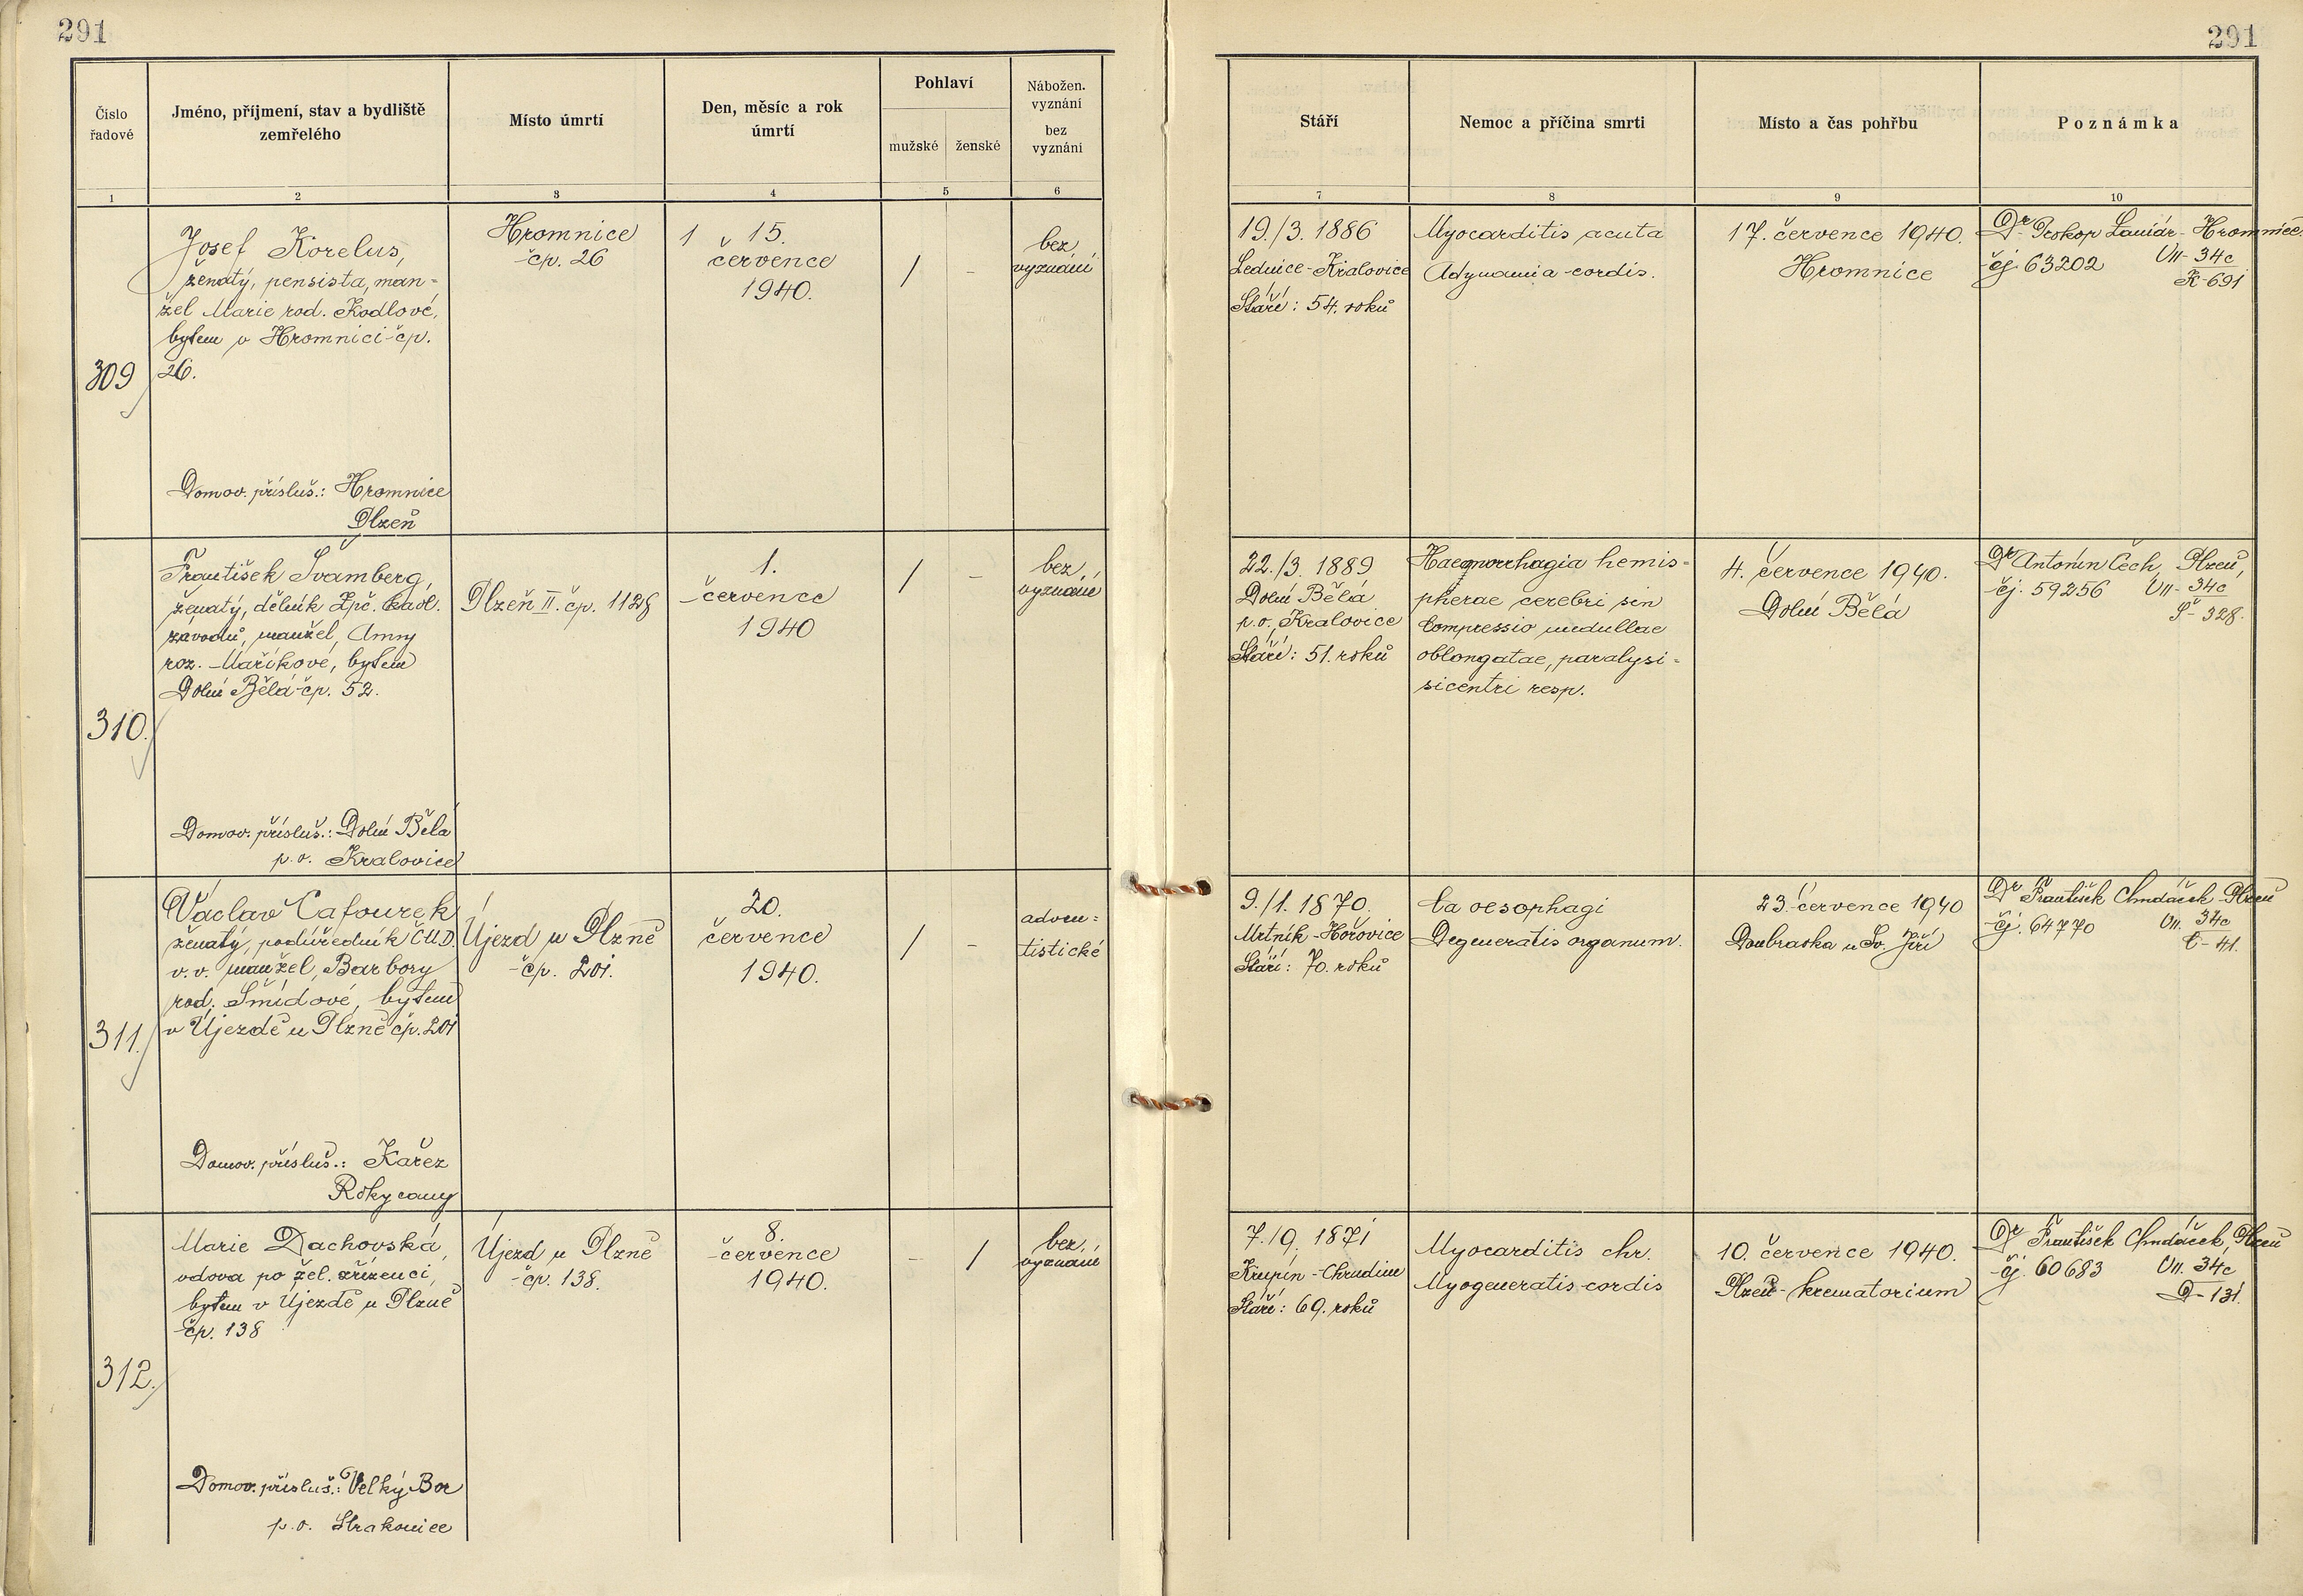 291
291
Číslo
řadové
Jméno, příjmení, stav a bydliště
zemřelého
Místo úmrtí
Den, měsíc a rok
úmrtí
Pohlaví
mužské
ženské
Nábožen.
vyznání
bez
vyznání
Stáří
Nemoc a příčina smrti
Místo a čas pohřbu
Poznámka
1
2
3
4
5
6
7
8
9
10
309
Josef Korelus,
ženatý, pensista, man-
žel Marie rod. Kodlové,
bytem v Hromnici čp.
26.
Domov. přísluš.: Hromnice
Plzeň
Hromnice
čp. 26
1 15.
července
1940.
/
-
bez
vyznání
19./3. 1886
Lednice-Kralovice
Stáří: 54. roků
Myocarditis acuta
Adynamia cordis.
17. července 1940.
Hromnice
Dr Prokop Hromnice
čj. 63202 VII-34c
K-691
310.
František Švamberg,
ženatý, dělník Zpč. kaol.
závodů, manžel, Anny
roz. Maříkové, bytem
Dolní Bělá čp. 52.
Domov. přísluš.: Dolní Bělá
p.o. Kralovice
Plzeň II. čp. 1128
1.
července
1940
/
-
bez
vyznání
22./3. 1889
Dolní Bělá
p.o. Kralovice
Stáří: 51. roků
Haemorrhagia hemis-
pherae cerebri sin
Compressio medullae
oblongatae, paralysi-
sicentri resp.
4. července 1940.
Dolní Bělá
Dr Antonín Čech, Plzeň,
čj. 59256 VII-34c
Š-328.
311.
Václav Cafourek
ženatý, podúředník ČMD.
v.v. manžel, Barbory
rod. Šmídové, bytem
v Újezdě u Plzně čp. 201
Domov. přísluš.: Kařez
Rokycany
Újezd u Plzně
čp. 201.
20.
července
1940.
/
-
adven=
tistické
9./1. 1870.
Mrtník-Hořovice
Stáří: 70. roků
Ca oesophagi
Degeneratis organum.
23. července 1940
Doubravka u Sv. Jiří
Dr František Chudáček Plzeň
čj. 64770 VII. 34c
C-41.
312.
Marie Dachovská,
vdova po žel. zřízenci,
bytem v Újezdě u Plzně
čp. 138
Domov. přísluš.: Velký Bor
p.o. Strakonice
Újezd u Plzně
čp. 138.
8.
července
1940.
-
/
bez
vyznání
7./9. 1871
Chrudim
Stáří: 69. roků
Myocarditis chr.
Myogeneratis cordis
10. července 1940.
Plzeň-krematorium
Dr František Chudáček, Plzeň
čj. 60683 VII. 34c
D-131.